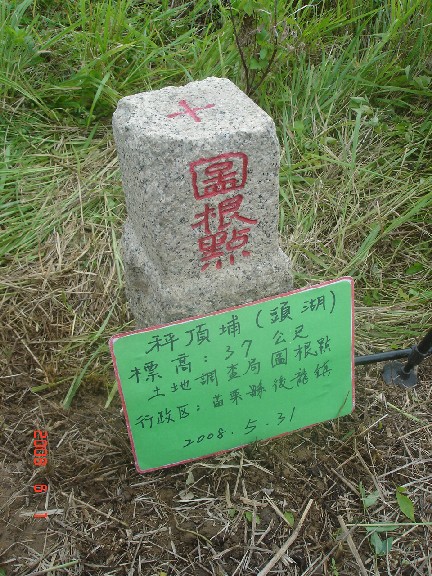 圖根點
秤頂埔(頭湖)
標高:37公尺
土地調查局圖根點
行政区:苗栗縣後龍鎮
2008.5.31